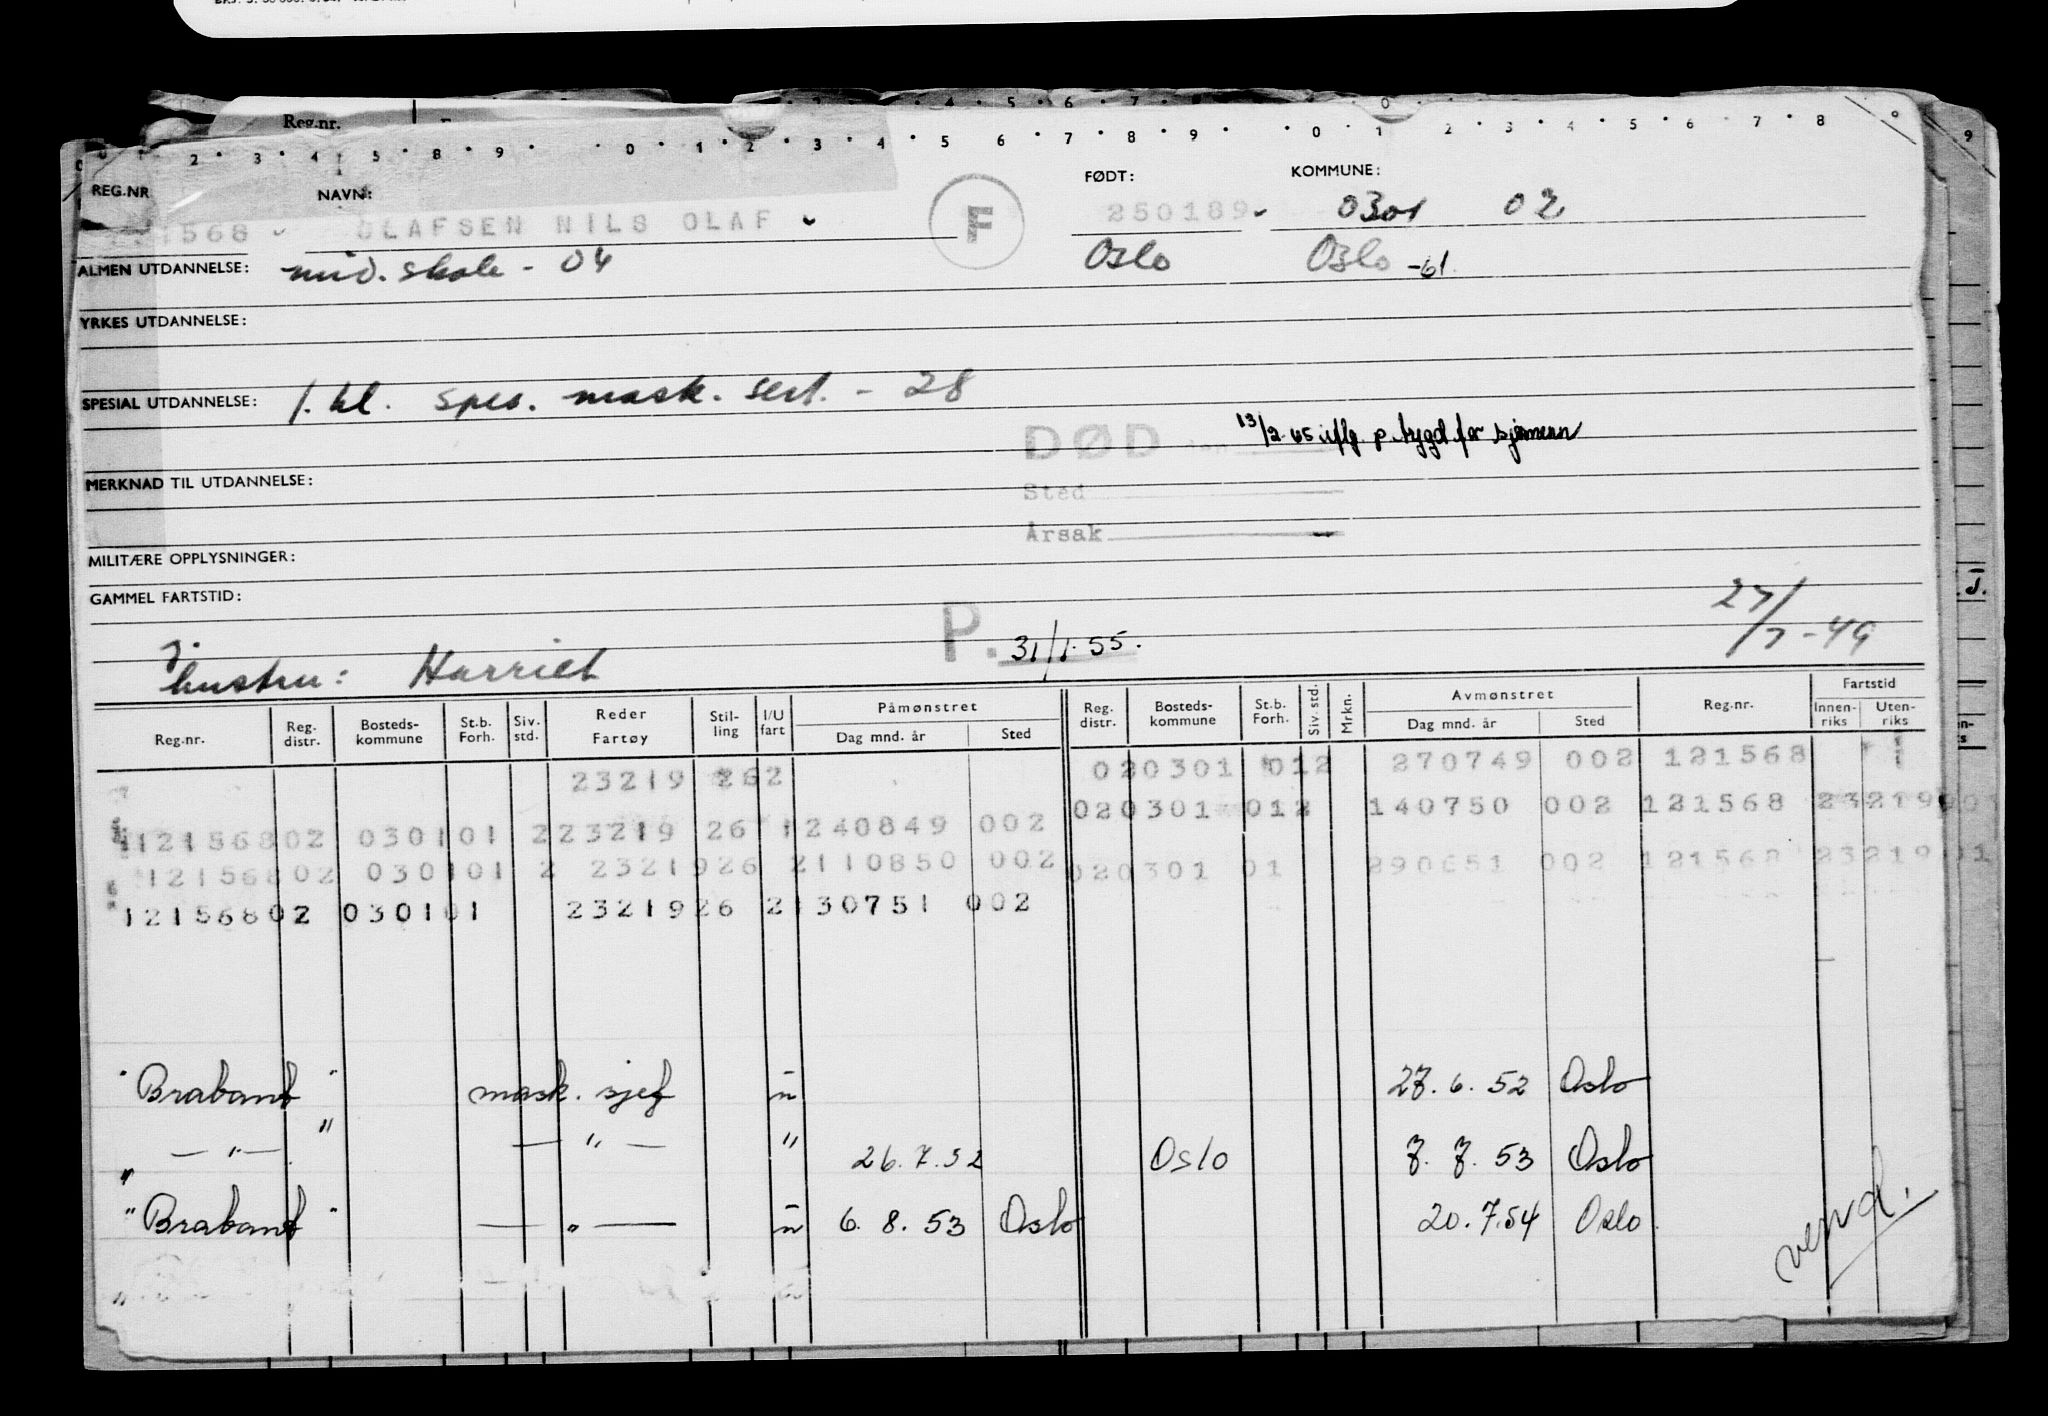 Reg.nr.
REG.NR NAVN: FØDT: KOMMUNE:
1568 OLAFSEN NILS OLAF F 250189 0301 02
ALMEN UTDANNELSE: mid. skole - 04 Oslo Oslo -61.
YRKES UTDANNELSE:
SPESIAL UTDANNELSE: 1. kl. spes. mask. sert. - 28
DØD den 13/2-65 iflg. p. trygd for sjømenn
MERKNAD TIL UTDANNELSE:
Sted
Årsak
MILITÆRE OPPLYSNINGER:
GAMMEL FARTSTID:
P. 31/1-55. 27/7-49
hustru: Harriet
Reg.nr. Reg. distr. Bosteds-kommune St.b. Forh. Siv. std. Reder Fartøy Stil-ling I/U fart Påmønstret Dag mnd. år Sted Reg. distr. Bosteds-kommune St.b. Forh. Siv. std. Mrkn. Avmønstret Dag mnd. år Sted Reg.nr. Fartstid Innen-riks Uten-riks
23219 262 020301 012 270749 002 121568
12156802 030101 223219 26 1240849 002 020301 012 140750 002 121568 23219
12156802 030101 2 2321926 2110850 002 020301 01 290651 002 121568 23219
12156802 030101 2321926 2130751 002
"Brabant" mask. sjef u 27. 6. 52 Oslo
— " — " — " — " 26. 7. 52 Oslo 7. 7. 53 Oslo
"Brabant" — " — u 6. 8. 53 Oslo 20. 7.54 Oslo
vend.